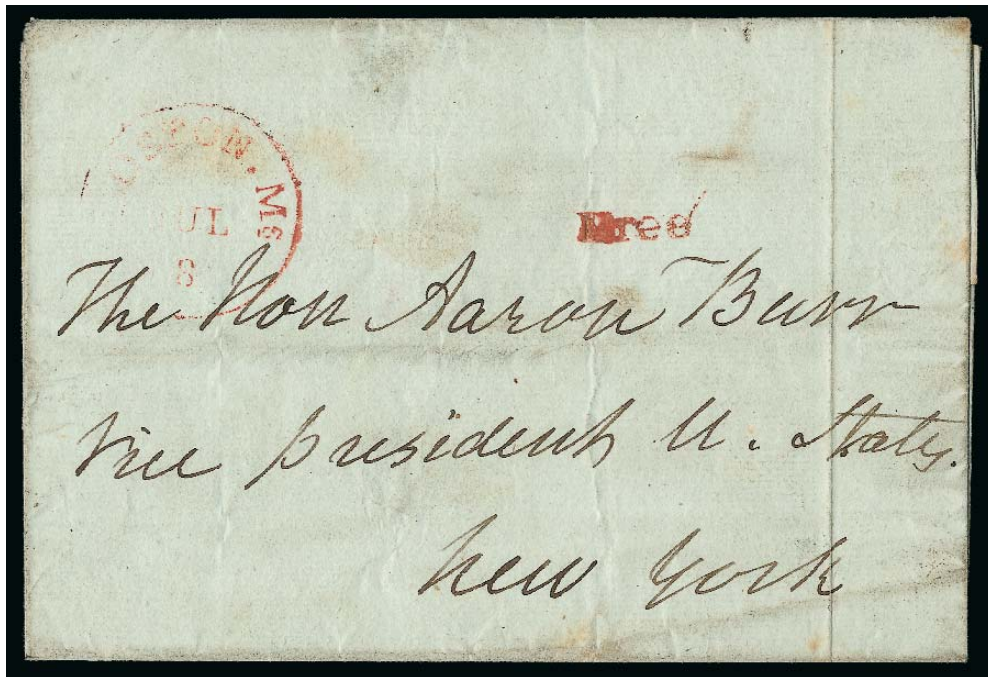 BOSTON. Ms
JUL
8
Free
The Hon Aaron Burr
Vice president U. States.
New York